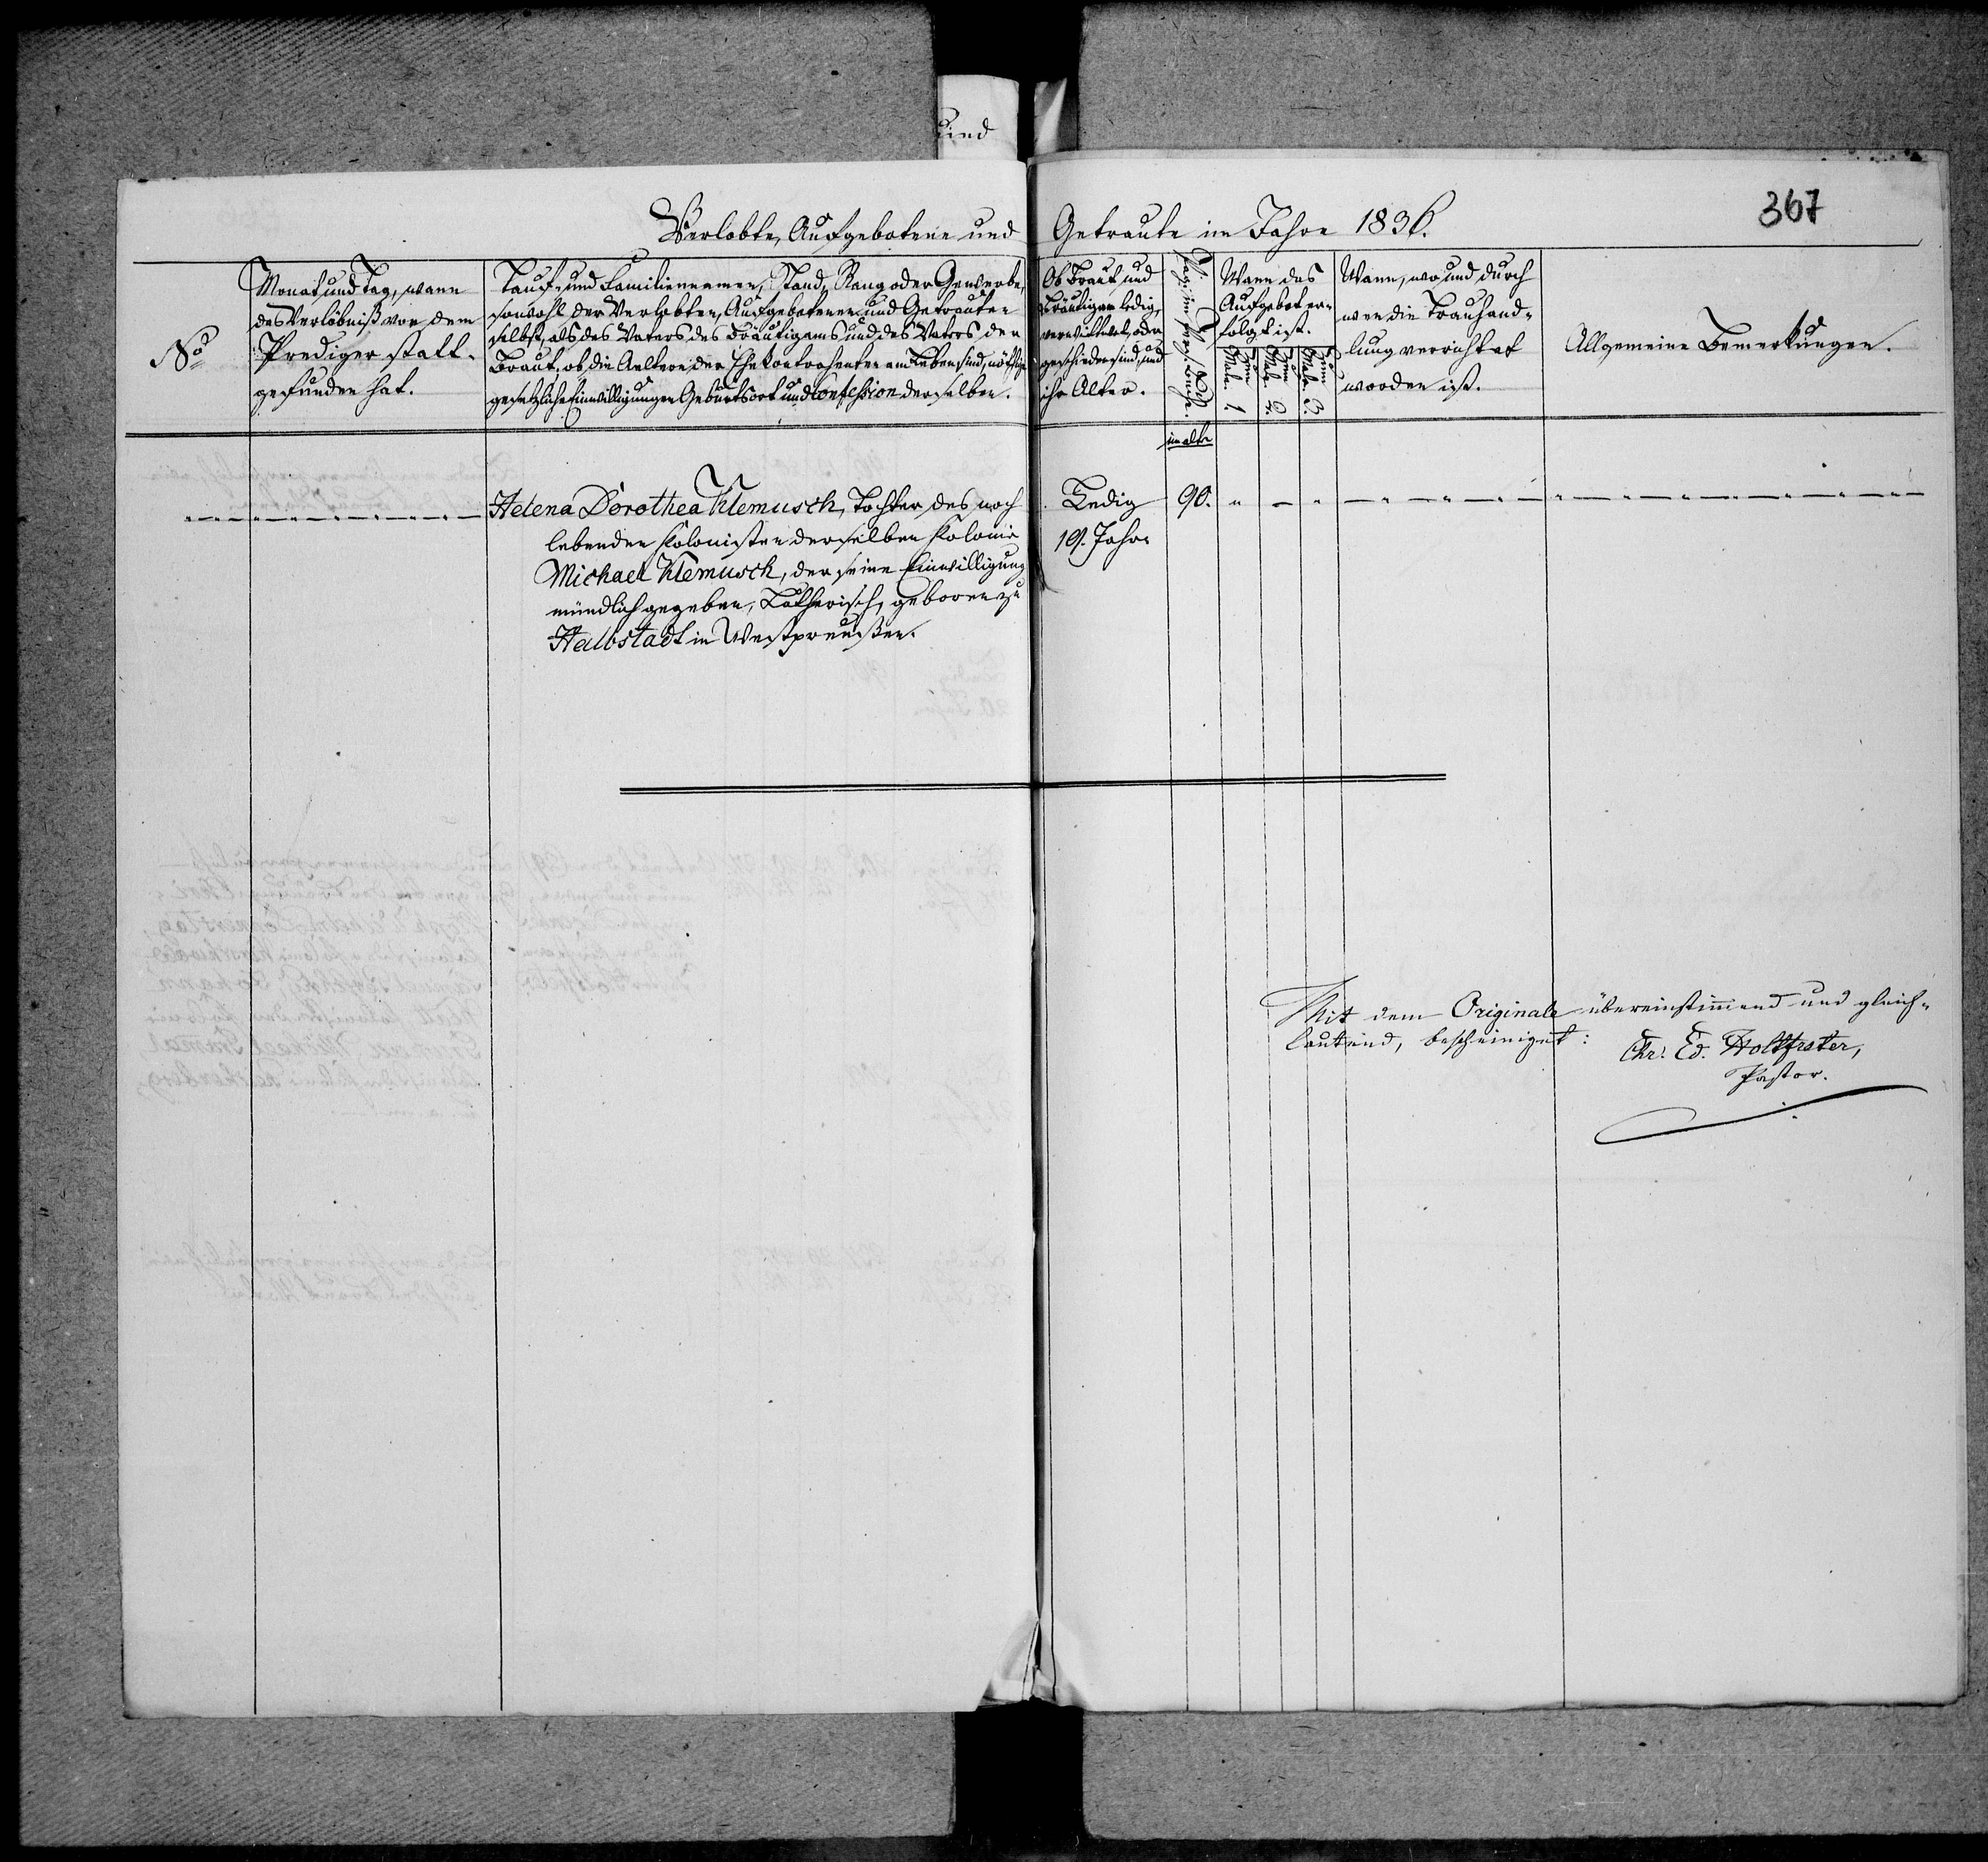 und
367
Verlobte, Aufgebotene und Getraute im Jahre 1836.
No
Monat und Tag, wann
des Verlöbniß vor dem
Prediger statt-
gefunden hat.
Tauf- und Familiennamen, Stand, Rang oder Gewerbe,
sowohl der Verlobten, Aufgebotenen und Getrauten
selbst, als des Vaters des Bräutigams und des Vaters der
Braut, ob die Aeltern der Ehekontrahenten am Leben sind, nöthige
gesetzliche Einwilligungen Geburtsort und Confession derselben.
Ob Braut und
Bräutigam ledig,
verwittwet, oder
geschieden sind, und
ihr Alter.
Pag. im Pers. Buche.
Wann das
Aufgebot er-
folgt ist.
Zum Male 1.
Zum Male 2.
Zum Male 3.
Wann, wo und durch
wen die Trauhand-
lung verrichtet
worden ist.
Allgemeine Bemerkungen.
im alte
Helena Dorothea Klemusch, Tochter des noch
lebenden Kolonisten derselben Kolonie
Michael Klemusch, der seine Einwilligung
mündlich gegeben, Lutherisch, geboren zu
Halbstadt in Westpreußen.
Ledig 90.
19. Jahr
Mit dem Originale übereinstimmend und gleich-
lautend, bescheiniget:
Chr. Ed. Holtfreter,
Pastor.